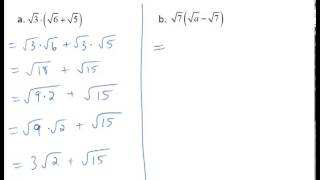 a. √3 · (√6 + √5)
= √3 · √6 + √3 · √5
= √18 + √15
= √(9·2) + √15
= √9 · √2 + √15
= 3√2 + √15
b. √7(√a − √7)
=